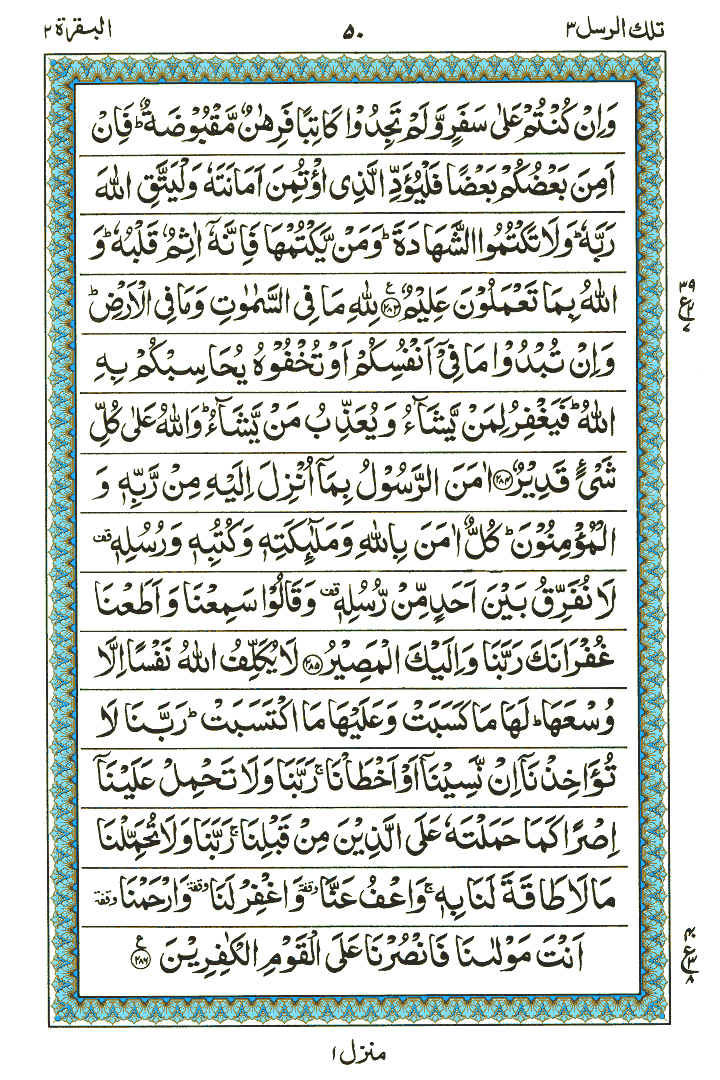 تلك الرسل ٣ ٥٠ البقرة ٢
وَاِنْ كُنْتُمْ عَلٰى سَفَرٍ وَّلَمْ تَجِدُوْا كَاتِبًا فَرِهٰنٌ مَّقْبُوْضَةٌ ؕ فَاِنْ
اَمِنَ بَعْضُكُمْ بَعْضًا فَلْيُؤَدِّ الَّذِی اؤْتُمِنَ اَمَانَتَهٗ وَلْيَتَّقِ اللّٰهَ
رَبَّهٗ ؕ وَلَا تَكْتُمُوا الشَّهَادَةَ ؕ وَمَنْ يَّكْتُمْهَا فَاِنَّهٗۤ اٰثِمٌ قَلْبُهٗ ؕ وَ
اللّٰهُ بِمَا تَعْمَلُوْنَ عَلِيْمٌ ﴿٢٨٣﴾ ع لِلّٰهِ مَا فِی السَّمٰوٰتِ وَمَا فِی الْاَرْضِ ؕ
٣٩
ع
٧
وَاِنْ تُبْدُوْا مَا فِیْۤ اَنْفُسِكُمْ اَوْ تُخْفُوْهُ يُحَاسِبْكُمْ بِهِ
اللّٰهُ ؕ فَيَغْفِرُ لِمَنْ يَّشَآءُ وَيُعَذِّبُ مَنْ يَّشَآءُ ؕ وَاللّٰهُ عَلٰى كُلِّ
شَیْءٍ قَدِيْرٌ ﴿٢٨٤﴾ اٰمَنَ الرَّسُوْلُ بِمَاۤ اُنْزِلَ اِلَيْهِ مِنْ رَّبِّهٖ وَ
الْمُؤْمِنُوْنَ ؕ كُلٌّ اٰمَنَ بِاللّٰهِ وَمَلٰٓئِكَتِهٖ وَكُتُبِهٖ وَرُسُلِهٖ قف
لَا نُفَرِّقُ بَيْنَ اَحَدٍ مِّنْ رُّسُلِهٖ قف وَقَالُوْا سَمِعْنَا وَاَطَعْنَا
غُفْرَانَكَ رَبَّنَا وَاِلَيْكَ الْمَصِيْرُ ﴿٢٨٥﴾ لَا يُكَلِّفُ اللّٰهُ نَفْسًا اِلَّا
وُسْعَهَا ؕ لَهَا مَا كَسَبَتْ وَعَلَيْهَا مَا اكْتَسَبَتْ ؕ رَبَّنَا لَا
تُؤَاخِذْنَاۤ اِنْ نَّسِيْنَاۤ اَوْ اَخْطَاْنَا ۚ رَبَّنَا وَلَا تَحْمِلْ عَلَيْنَاۤ
اِصْرًا كَمَا حَمَلْتَهٗ عَلَى الَّذِيْنَ مِنْ قَبْلِنَا ۚ رَبَّنَا وَلَا تُحَمِّلْنَا
مَا لَا طَاقَةَ لَنَا بِهٖ ۚ وَاعْفُ عَنَّا وقفة وَاغْفِرْ لَنَا وقفة وَارْحَمْنَا وقفة
اَنْتَ مَوْلٰىنَا فَانْصُرْنَا عَلَى الْقَوْمِ الْكٰفِرِيْنَ ﴿٢٨٦﴾ ع
٤٠
ع
٣
٨
منزل ١